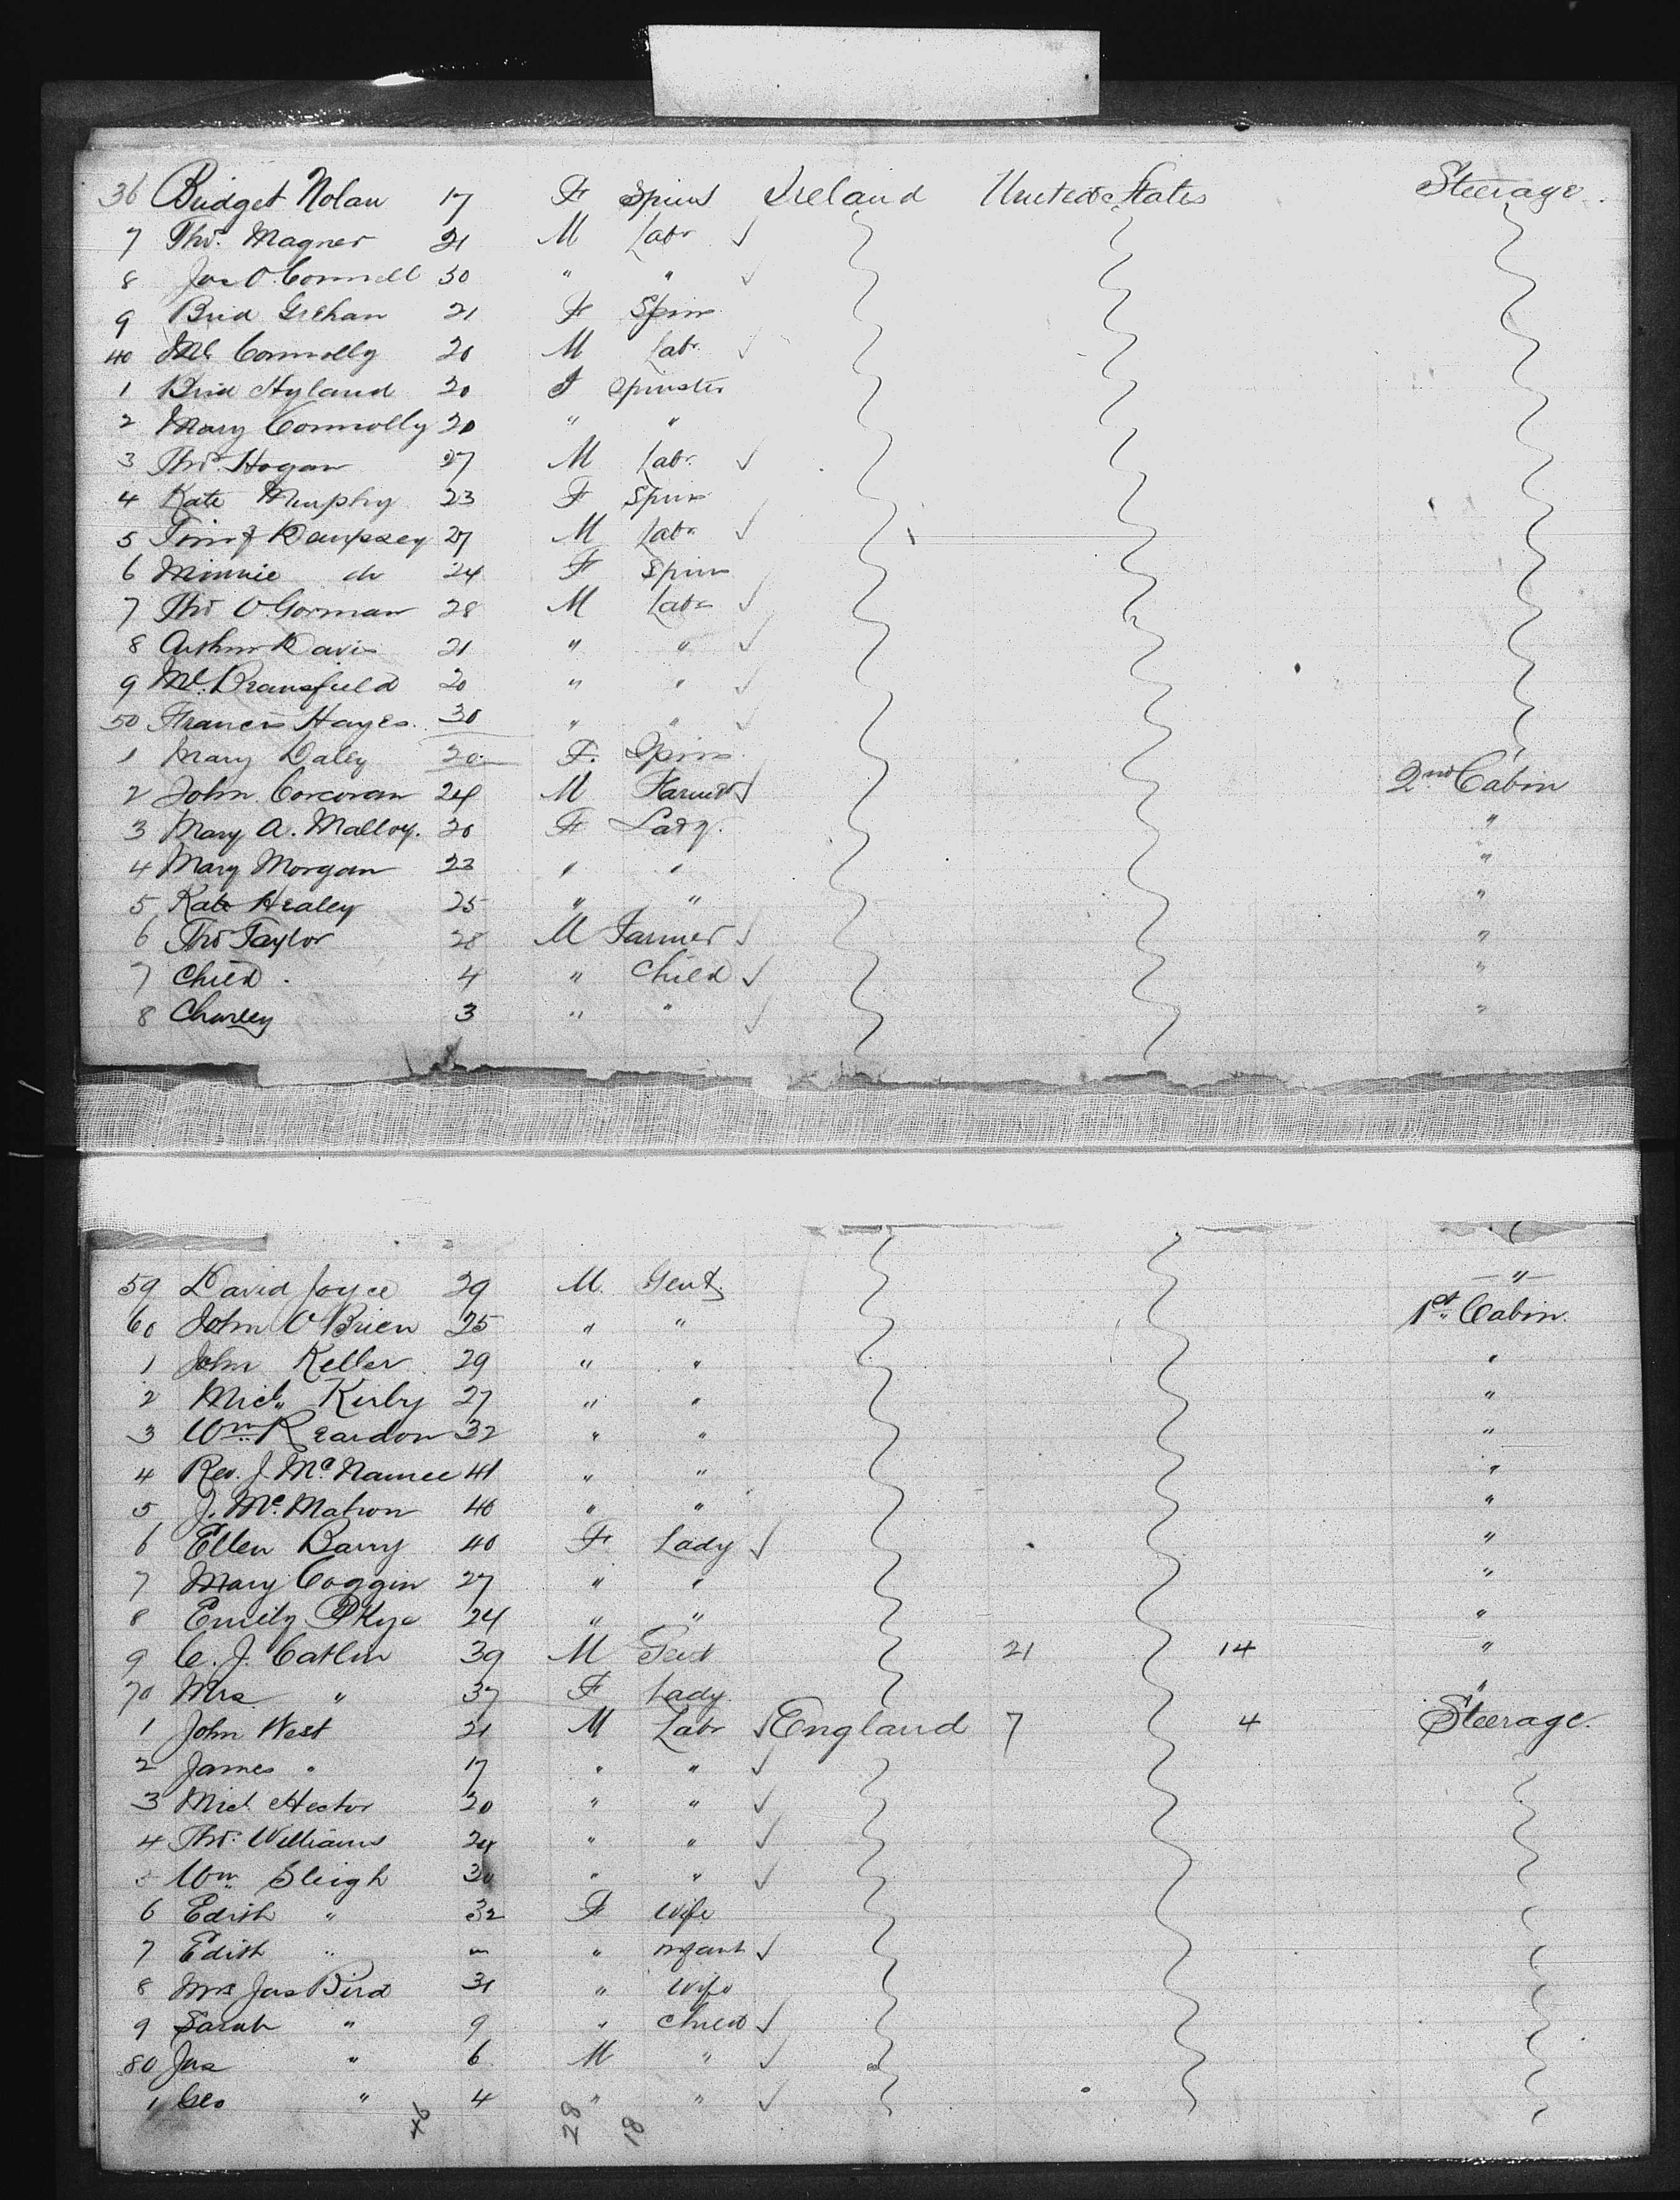 36 Bridget Nolan 17 F Spins Ireland United States Steerage
7 Thos. Magner 21 M Labr
8 Jas O'Connell 30 " "
9 Brid Grehan 21 F Spins
40 Ml. Connolly 20 M Labr
1 Brid Hyland 20 F Spinster
2 Mary Connolly 20 " "
3 Thos Hogan 27 M Labr
4 Kate Murphy 23 F Spins
5 Timy Dempsey 27 M Labr
6 Minnie do 24 F Spins
7 Thos O'Gorman 28 M Labr
8 Arthur Davis 21 " "
9 Ml. Bransfield 20 " "
50 Francis Hayes 30 " "
1 Mary Daley 20 F. Spins
2 John Corcoran 24 M Farmer 2nd Cabin
3 Mary A. Malloy. 20 F Lady "
4 Mary Morgan 23 " " "
5 Kate Healey 25 " " "
6 Thos Taylor 28 M Farmer "
7 Child. 4 " Child "
8 Charley 3 " " "
59 David Joyce 29 M. Gent "
60 John O'Brien 25 " " 1st Cabin.
1 John Keller 29 " " "
2 Michl. Kirby 27 " " "
3 Wm. Reardon 32 " " "
4 Rev. J. McNamee 41 " " "
5 J. Mc.Mahon 40 " " "
6 Ellen Barry 40 F Lady "
7 Mary Coggin 27 " " "
8 Emily 24 " " "
9 C. J. Catlin 39 M Gent 21 14 "
70 Mrs " 37 F Lady "
1 John West 21 M Labr England 7 4 Steerage.
2 James " 17 " "
3 Michl Hector 20 " "
4 Thos. Williams 24 " "
5 Wm. Sleigh 30 " "
6 Edith " 32 F Wife
7 Edith " " Infant
8 Mrs Jas Bird 31 " Wife
9 Sarah " 9 " Child
80 Jas " 6 M "
1 Geo " 4 " "
46 28 18